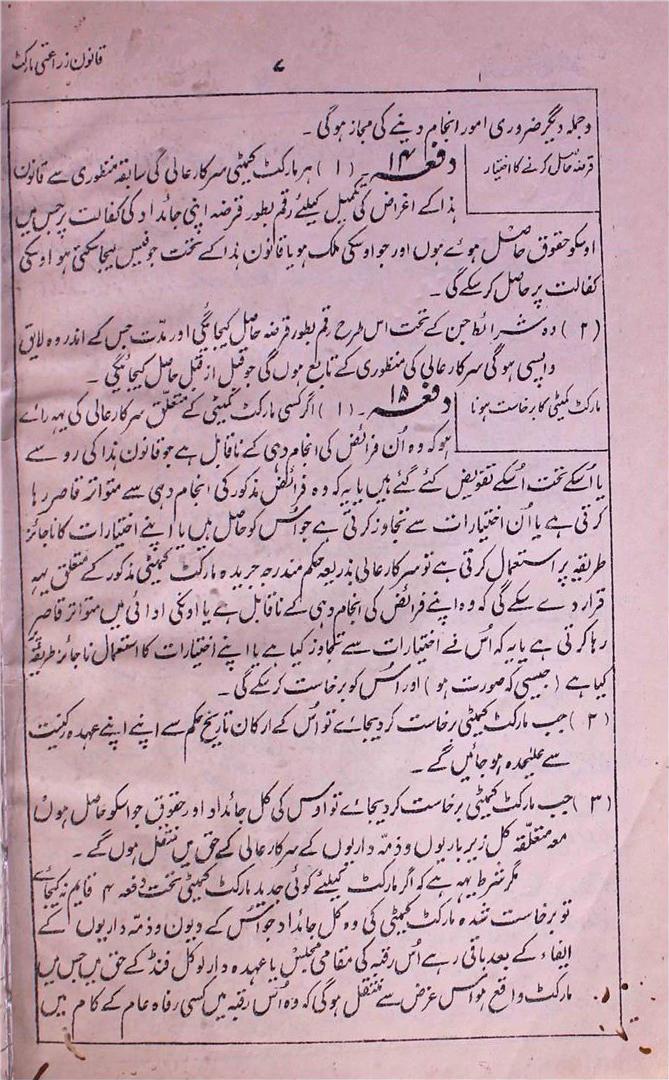 قانون زراعتی مارکٹ
۷
و جملہ دیگر ضروری امور انجام دینے کی مجاز ہوگی ۔
قرضہ حاصل کرنے کا اختیار
دفعہ ۱۴ ۔ (۱) ہر مارکٹ کمیٹی سرکار عالی کی سابقہ منظوری سے قانون
ہذا کے اغراض کی تکمیل کیلئے رقم بطور قرضہ اپنی جائداد کی کفالت پر جس میں
اوسکو حقوق حاصل ہوے ہوں اور جو اوسکی ملک ہو یا قانون ہذا کے تحت جو فیس لیجاسکتی ہو اوسکی
کفالت پر حاصل کر سکے گی ۔
(۲) وہ شرائط جن کے تحت اس طرح رقم بطور قرضہ حاصل کیجائیگی اور مدّت جس کے اندر وہ لایق
واپسی ہوگی سرکار عالی کی منظوری کے تابع ہوں گی جو قبل از قبل حاصل کیجائیگی ۔
مارکٹ کمیٹی کا برخاست ہونا
دفعہ ۱۵ ۔ (۱) اگر کسی مارکٹ کمیٹی کے متعلق سرکار عالی کی یہہ راے
ہو کہ وہ اُن فرائض کی انجام دہی کے ناقابل ہے جو قانون ہذا کی رو سے
یا اُسکے تحت اُسکے تفویض کئے گئے ہیں یا یہ کہ وہ فرائض مذکور کی انجام دہی سے متواتر قاصر رہا
کرتی ہے یا اُن اختیارات سے تجاوز کرتی ہے جو اُس کو حاصل ہیں یا اپنے اختیارات کا ناجائز
طریقہ پر استعمال کرتی ہے تو سرکار عالی بذریعہ حکم مندرجہ جریدہ مارکٹ کمیٹی مذکور کے متعلق یہہ
قرار دے سکے گی کہ وہ اپنے فرائض کی انجام دہی کے ناقابل ہے یا اونکی ادائی میں متواتر قاصر
رہا کرتی ہے یا یہ کہ اُس نے اختیارات سے تجاوز کیا ہے یا اپنے اختیارات کا استعمال ناجائز طریقہ پر
کیا ہے (جیسی کہ صورت ہو) اور اُس کو برخاست کرسکے گی ۔
(۲) جب مارکٹ کمیٹی برخاست کر دیجاے تو اُس کے ارکان تاریخ حکم سے اپنے اپنے عہدہ رکنیت
سے علیحدہ ہو جائیں گے ۔
(۳) جب مارکٹ کمیٹی برخاست کر دیجاے تو اوس کی کل جائداد اور حقوق جو اسکو حاصل ہوں
معہ متعلقہ کل زیر باریوں و ذمّہ داریوں کے سرکار عالی کے حق میں منتقل ہوں گے ۔
مگر شرط یہہ ہے کہ اگر مارکٹ کیلئے کوئی جدید مارکٹ کمیٹی تحت دفعہ ۴ قایم نہ کیجاے
تو برخاست شدہ مارکٹ کمیٹی کی وہ کل جائداد جو اُس کے دیون و ذمّہ داریوں کے
ایفاء کے بعد باقی رہے اُس رقبہ کی مقامی مجلس یا عہدہ دار لوکل فنڈ کے حق میں جس میں
مارکٹ واقع ہو اس غرض سے منتقل ہوگی کہ وہ اُس رقبہ میں کسی رفاہ عام کے کام میں